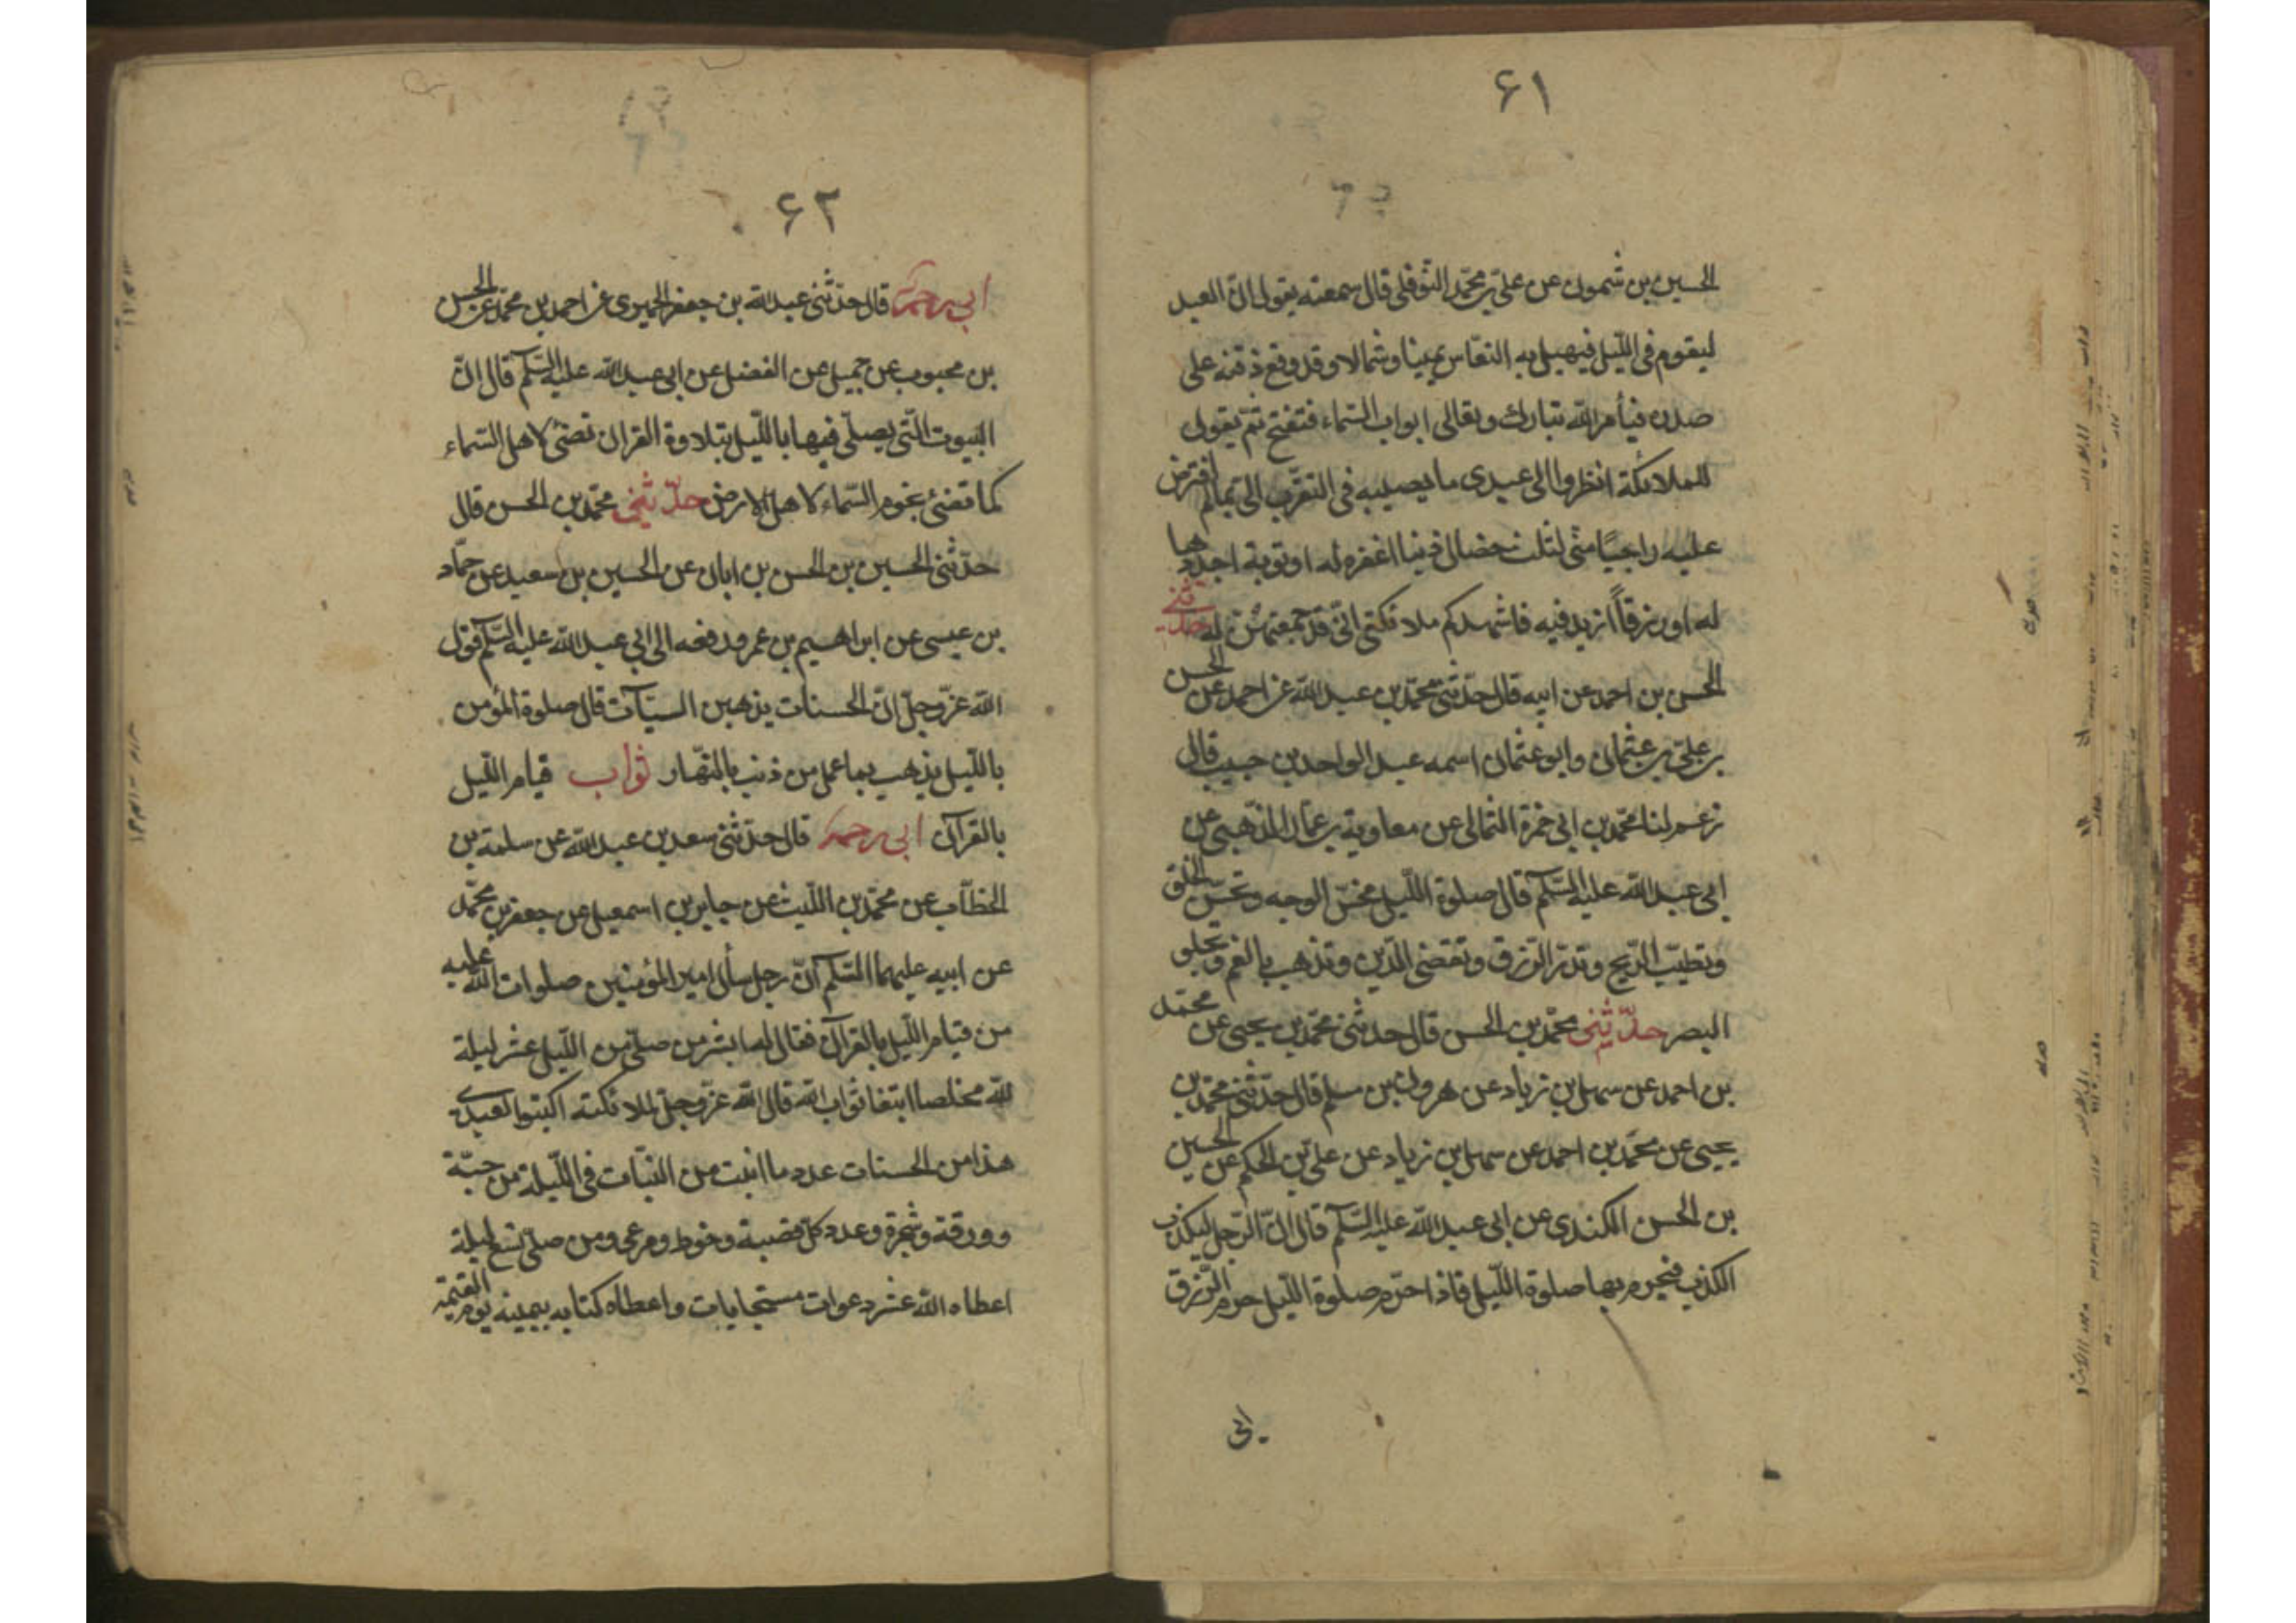 ۶۱
الحسين بن شمون عن علي بن محمد النوفلي قال سمعته يقول ان العبد
ليقوم في الليل فيهيل به النعاس يمينا وشمالا وقد وقع ذقنه على
صدره فيأمر الله تبارك وتعالى ابواب السماء فتفتح ثم يقول
للملائكة انظروا الى عبدى ما يصيبه في التقرب الى بما لم افترض
عليه راجيا منى لثلث خصال ذنبا اغفره له او توبة اجددها
له او رزقا ازيد فيه فاشهدكم ملائكتى انى قد جمعتهن له حدثنى
الحسن بن احمد عن ابيه قال حدثنى محمد بن عبد الله عن احمد عن الحسن
بن على بن عثمان وابو عثمان اسمه عبد الواحد بن حبيب قال
زعم لنا محمد بن ابى حمزة الثمالى عن معاوية بن عمار الذهبى عن
ابى عبد الله عليه السلم قال صلوة الليل تحسن الوجه وتحسن الخلق
وتطيب الريح وتدر الرزق وتقضى الدين وتذهب بالغم وتجلو
البصر حدثنى محمد بن الحسن قال حدثنى محمد بن يحيى عن محمد
بن احمد عن سهل بن زياد عن هرون بن مسلم قال حدثنى محمد بن
يحيى عن محمد بن احمد عن سهل بن زياد عن على بن الحكم عن الحسين
بن الحسن الكندى عن ابى عبد الله عليه السلم قال ان الرجل ليكذب
الكذب فيحرم بها صلوة الليل فاذا احرم صلوة الليل حرم الرزق
ابى
۶۲
ابى رحمه قال حدثنى عبد الله بن جعفر الحميرى عن احمد بن محمد عن الحسن
بن محبوب عن جميل عن الفضل عن ابى عبد الله عليه السلم قال ان
البيوت التى يصلى فيها بالليل بتلاوة القران تضئ لاهل السماء
كما تضئ نجوم السماء لاهل الارض حدثنى محمد بن الحسن قال
حدثنى الحسين بن الحسن بن ابان عن الحسين بن سعيد عن حماد
بن عيسى عن ابراهيم بن عمر ودفعه الى ابى عبد الله عليه السلم قول
الله عز وجل ان الحسنات يذهبن السيآت قال صلوة المؤمن
بالليل يذهب بما عمل من ذنب بالنهار ثواب قيام الليل
بالقرآن ابى رحمه قال حدثنى سعد بن عبد الله عن سلمة بن
الخطاب عن محمد بن الليث عن جابر بن اسمعيل عن جعفر بن محمد
عن ابيه عليهما السلم ان رجل سأل امير المؤمنين صلوات الله عليه
من قيام الليل بالقرآن فقال له ابشر من صلى من الليل عشر ليلة
لله مخلصا ابتغا ثواب الله قال الله عز وجل لملائكته اكتبوا لعبدى
هذا من الحسنات عدد ما انبت من النبات فى الليلة من حبة
وورقة وشجرة وعدد كل قصبة وخوط ومرعى ومن صلى تسع ليلة
اعطاه الله عشر دعوات مستجابات واعطاه كتابه بيمينه يوم القيمة